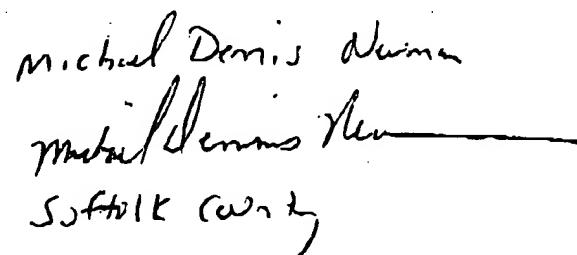 Michael Dennis Newman
Michael Dennis New
Suffolk County